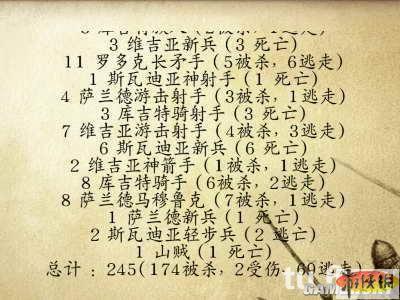 3 维吉亚新兵 (3 死亡)
11 罗多克长矛手 (5被杀, 6逃走)
1 斯瓦迪亚神射手 (1 死亡)
4 萨兰德游击射手 (3被杀, 1逃走)
3 库吉特骑射手 (3 死亡)
7 维吉亚游击射手 (4被杀, 3逃走)
6 斯瓦迪亚新兵 (6 死亡)
2 维吉亚神箭手 (1被杀, 1逃走)
8 库吉特骑手 (6被杀, 2逃走)
8 萨兰德马穆鲁克 (7被杀, 1逃走)
1 萨兰德新兵 (1 死亡)
2 斯瓦迪亚轻步兵 (2 逃亡)
1 山贼 (1 死亡)
总计 : 245(174被杀, 2受伤, 69逃走)